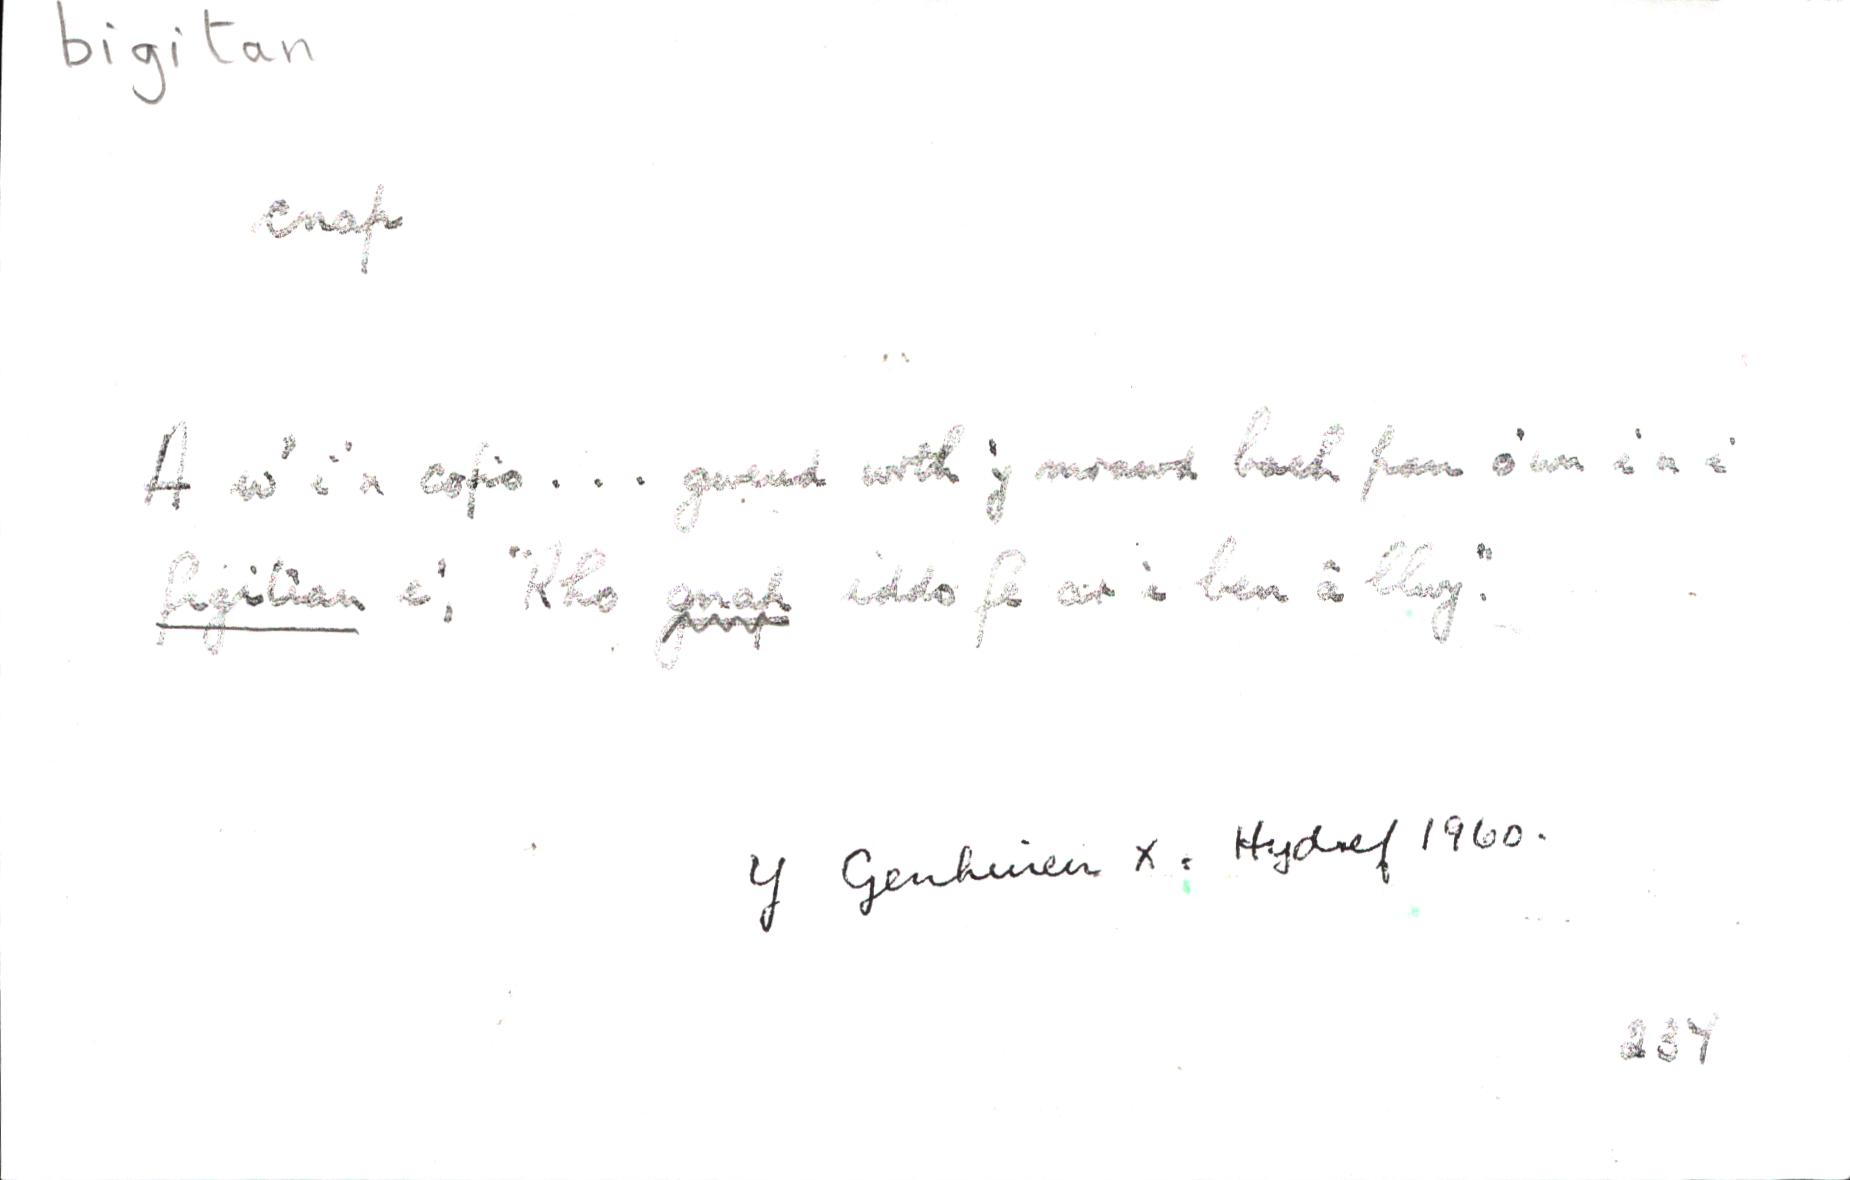 bigitan
cnap
A w' i'n cofio . . . gweud wrth y morwn bach pan o'wn i'n i
figitian e', "Rho gnap iddo fe ar i ben â llwy."
Y Genhinen X : Hydref 1960.
237